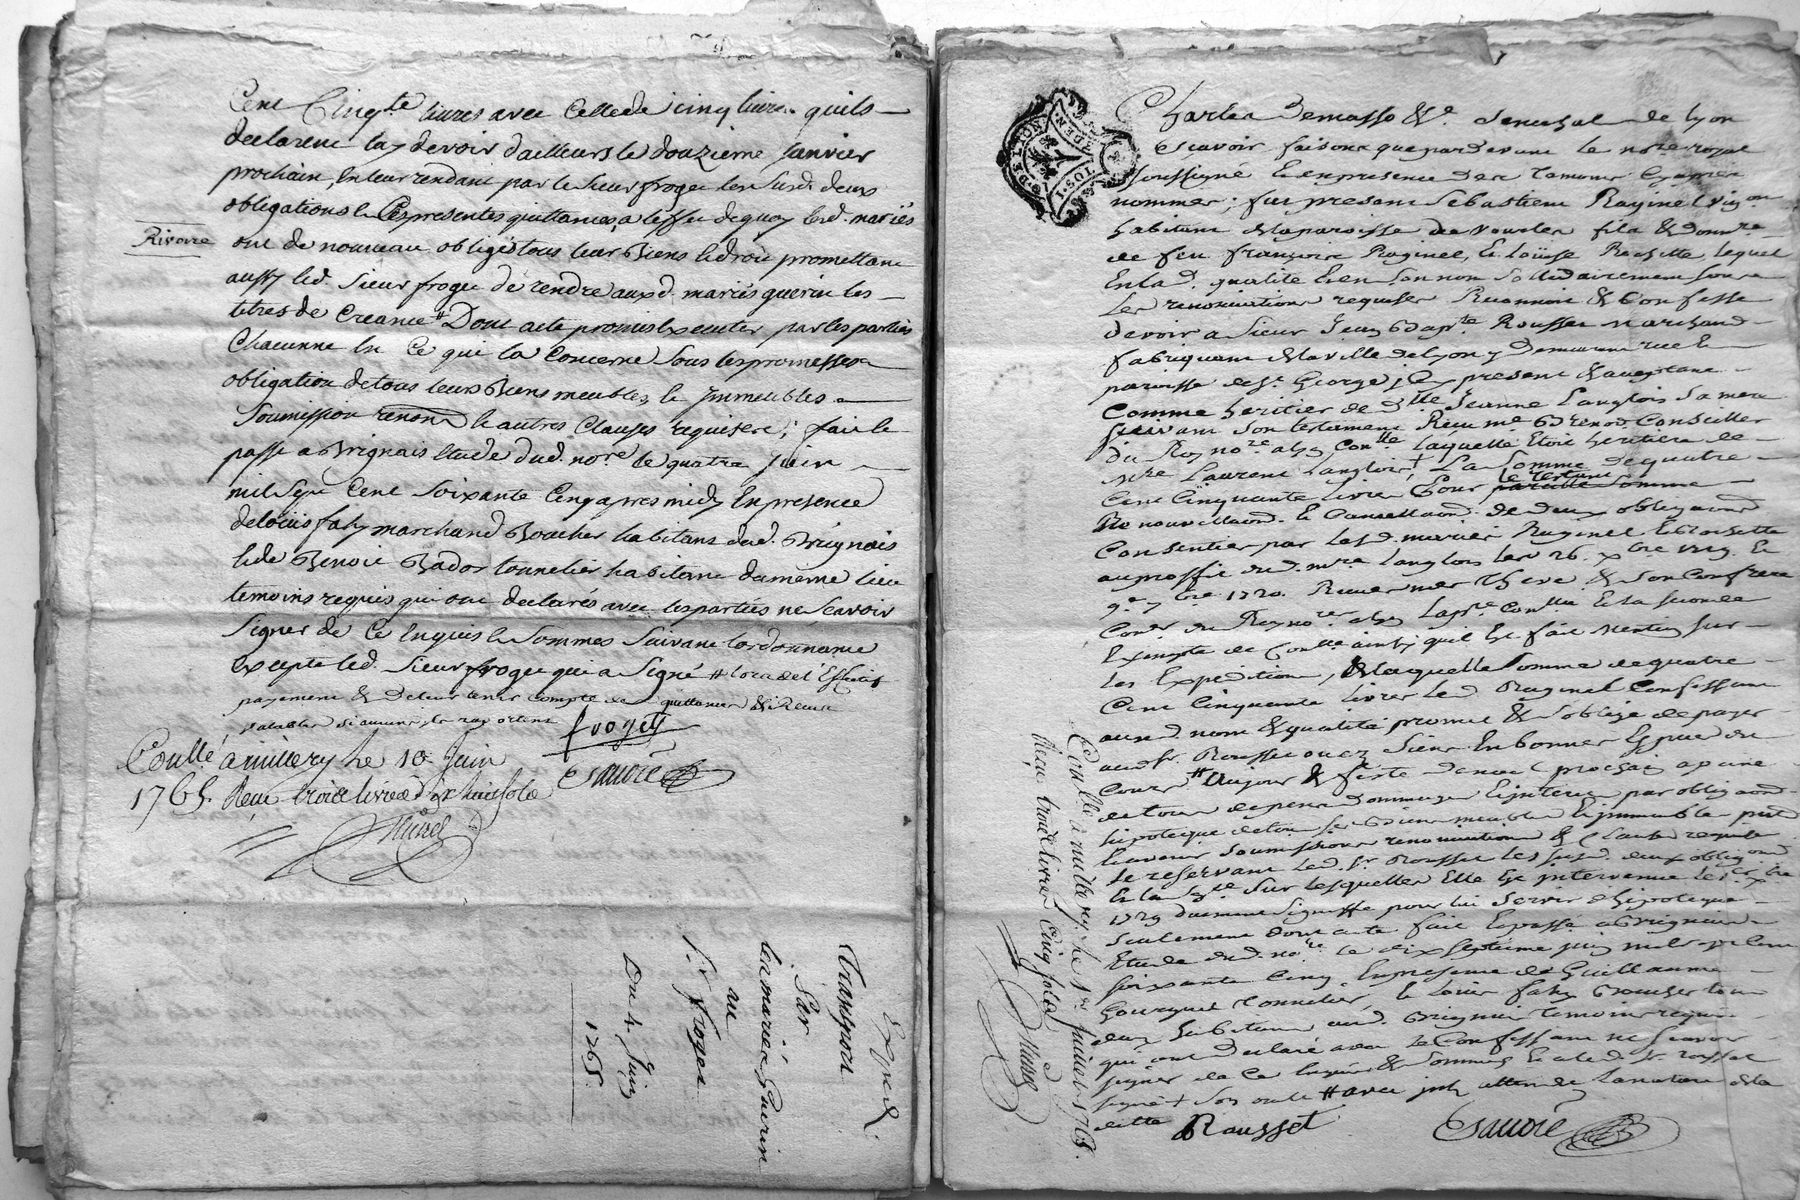 Cent Cinq.te livres avec Celle de cinq livres quils
declarent luy devoir d'ailleurs le douzieme Janvier
prochain, en leur rendant par le Sieur froget les Susd. deux
obligations & les presentes quittances, a leffet de quoy lesd. mariés
Rivoire
ont de nouveau obligés tous leurs Biens led. promettant
aussy led. Sieur froget de rendre auxd. mariés guerin les
titres de Creance # Dont acte promis Executer par les parties
Chacunne En Ce qui la Concerne Sous les promesses
obligation de tous leurs Biens meubles, & Immeubles
Soumission renon & autres Clauses requises; fait &
passé a Brignais Etude dud. no.re le quatre Juin
mil Sept Cent Soixante Cinq apres midy En presence
de loüis fahy marchand Boucher habitant dud. Brignais
& de Benoit Bados tonnelier habitant du meme lieu
temoins requis qui ont declarés avec les parties ne Scavoir
Signer de Ce Enquis & Sommés Suivant l'ordonnance
Excepté led. Sieur froget qui a Signé # lors de l'Effectif
payement & de leur tenir compte des quittances
valables si aucunes ils raportent
froget
Esauvié
Coull.é a millery le 10 Juin
1765. Reçu trois livres dix huit sols
Expedi.
Transport
Par
les mariés Guerin
au
S.r froget
Du 4 Juin
1765.
DE LYON
Charles Demasso &.a Senechal de lyon
Sçavoir faisons que pardevant le no.re royal
Soussigné & en presence des temoins Cy apres
nommés; fut present Sebastien Raginel vigneron
habitant de la paroisse de vourles fils & donn.re
de feu françois Raginel, & Loüise Rochette, lequel
En lad. qualité & en Son nom Sollidairement Sous
les renonciations requises Reconnoit & Confesse
devoir a Sieur Jean Bap.te Rousset marchand
fabriquant de la ville de lyon y demeurant rue &
paroisse de S.t George icy present & acceptant
Comme heritier de d.lle Jeanne Langlois Sa mere
Suivant Son testament Recu m.e Brenod Conseiller
du Roy no.re a lyon laquelle Etoit heritiere de
M.re Laurent Langlois, La Somme de quatre
Cent Cinquante livres Pour
Renouvellant & Cancellant de deux obligations
Consenties par lesd. mariés Raginel & Rochette
au proffit dud. m.re Langlois les 26. x.bre 1719. &
1720. Recues & Son Confrere
Con.er du Roy no.res a lyon la p.re & la Seconde
Exempte de ainsy quil Est fait mention Sur
les Expeditions, de laquelle Somme de quatre
Cent Cinquante livres led. Raginel Confessant
aux d. nom & qualité promet & S'oblige de payer
aud. S.r Rousset ou aux Siens En bonnes Especes du
Cours # au jour & feste de noel prochain a peine
de tous depens dommages & interets par obligation
hipoteque de tous Ses Biens meubles & immeubles
Soumissions renonciations & Clauses requises
Se reservant led. S.r Rousset les Susd. deux obligations
& la Sur lesquelles Elle Est intervenue le
1729 duement Signiffiée pour lui Servir d'hipoteque
Seulement dont acte fait & passé a Brignais
Etude dud. no.re le dix Septieme juin mil Sept Cent
Soixante Cinq En presence de Guillaume
tonnelier, & Loüis fahy Boucher tous
deux habitans aud. Brignais temoins requis
qui ont declaré avec le Confessant ne Scavoir
Signer de Ce Enquis & Sommés & a led. S.r rousset
Signé # avec la nature de la
ditte
Rousset
Esauvié
Coull.é a millery le 1.er Juillet 1765.
Reçu trois livres Cinq Sols